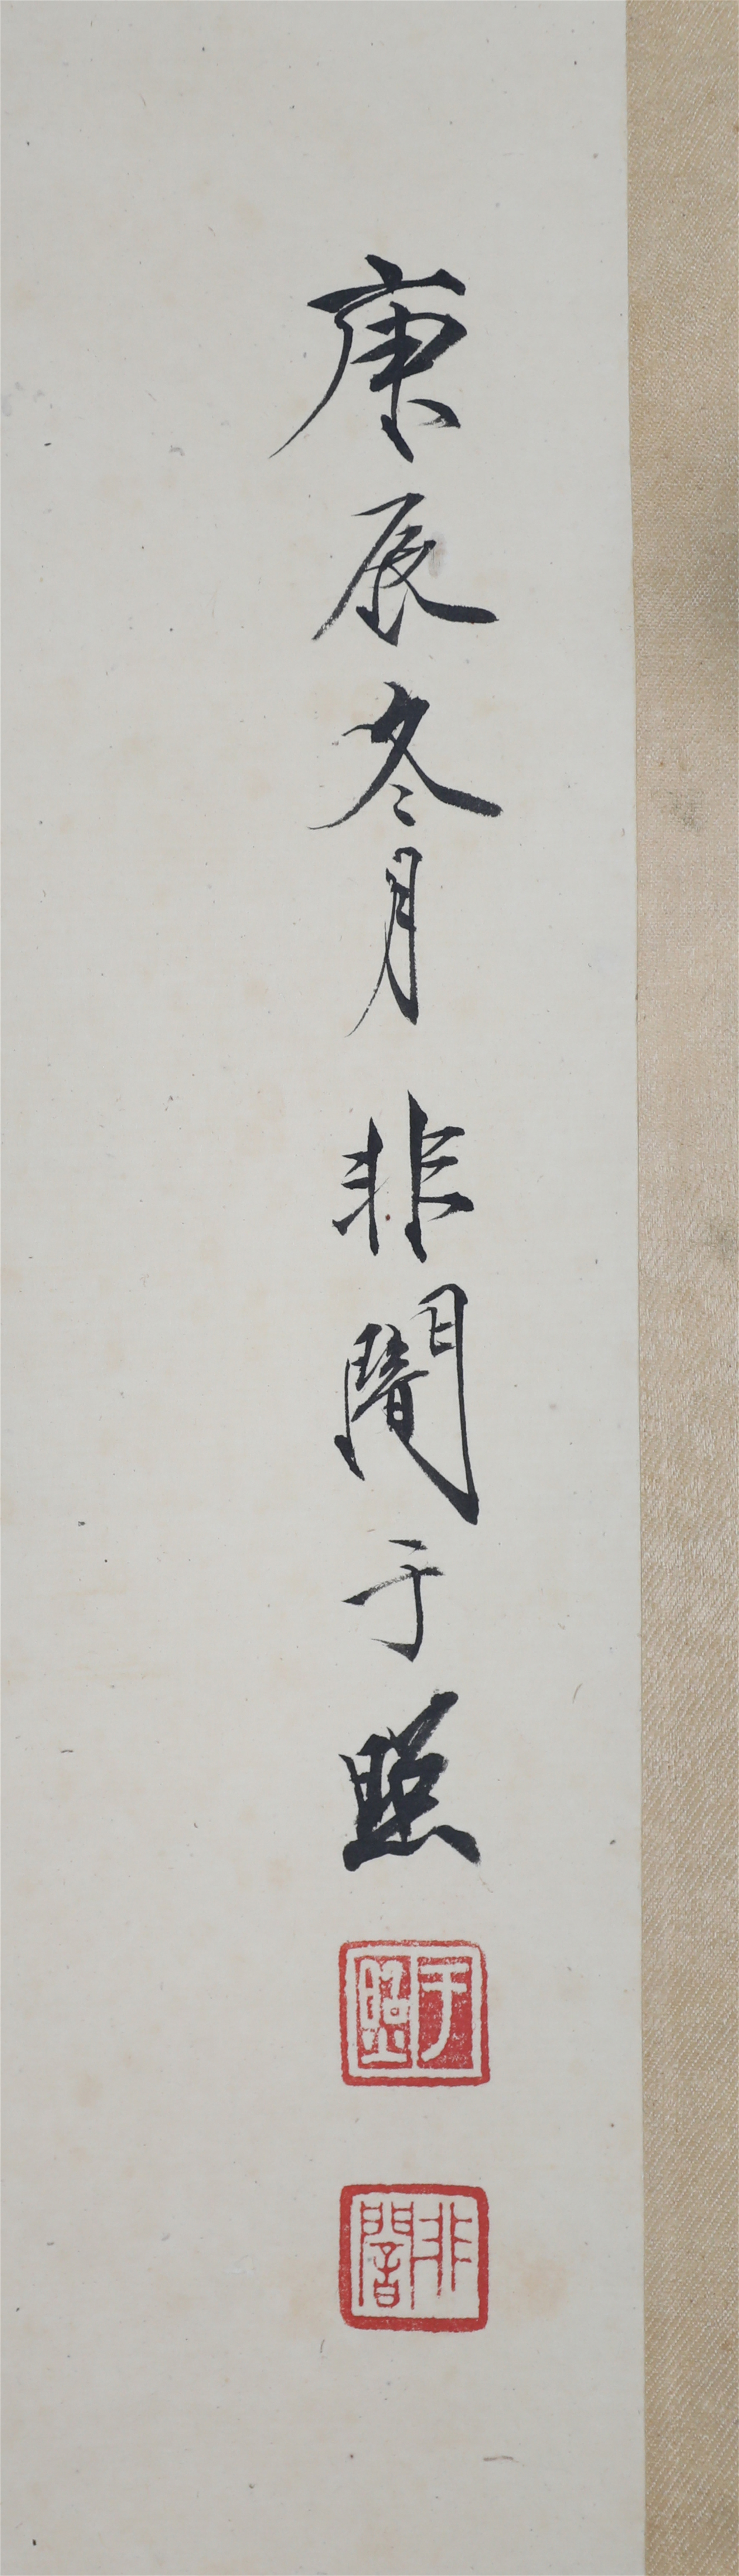 庚辰冬月 非闇于照
于照
非闇